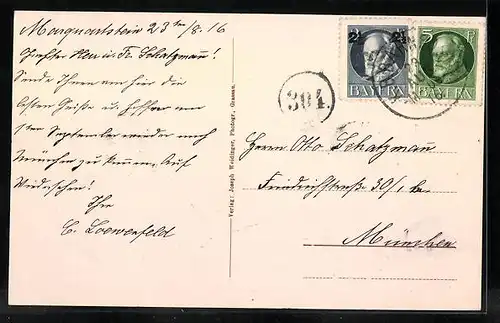 Marquartstein 23ten/8.16
Geehrter Herr u. Fr. Schatzmann!
Sende Ihnen von hier die
besten Grüße u. hoffe am
1ten September wieder nach
München zu kommen. Auf
Wiedersehen!
Ihr
C. Loewenfeld
Verlag: Joseph Weidinger, Photogr., Grassau.
304.
2½ 2½
BAYERN
5 PF
BAYERN
Herrn Otto Schatzmann
Friedrichstraße 30/1. r.
München